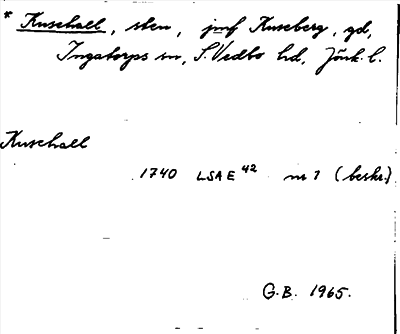 * Kuschall, sten, jmf Kuseberg, gd,
Ingatorps sn, S. Vedbo hd, Jönk. l.
Kuschall
1740 LSA E 42 nr 1 (beskr.)
G.B. 1965.